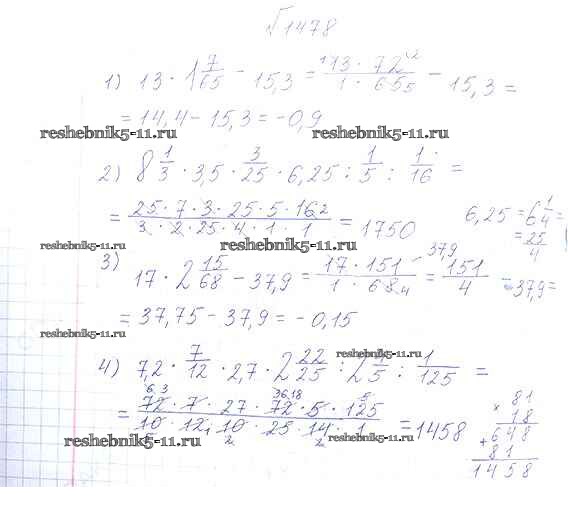 √1478
1) 13 · 1 7/65 - 15,3 = 13 · 72/1 · 65 - 15,3 =
= 14,4 - 15,3 = -0,9
reshebnik5-11.ru reshebnik5-11.ru
2) 8 1/3 · 3,5 · 3/25 · 6,25 : 1/5 : 1/16 =
= 25 · 7 · 3 · 25 · 5 · 16/3 · 2 · 25 · 4 · 1 · 1 = 1750
6,25 = 6 1/4 =
= 25/4
reshebnik5-11.ru reshebnik5-11.ru
3) 17 · 2 15/68 - 37,9 = 17 · 151/1 · 68 - 37,9 = 151/4 - 37,9 =
= 37,75 - 37,9 = -0,15
reshebnik5-11.ru
4) 7,2 · 7/12 · 2,7 · 2 22/25 : 2 4/5 : 1/125 =
reshebnik5-11.ru reshebnik5-11.ru
= 72 · 7 · 27 · 72 · 5 · 125/10 · 12 · 10 · 25 · 14 · 1 = 1458
reshebnik5-11.ru reshebnik5-11.ru
81
× 18
648
+ 81
1458